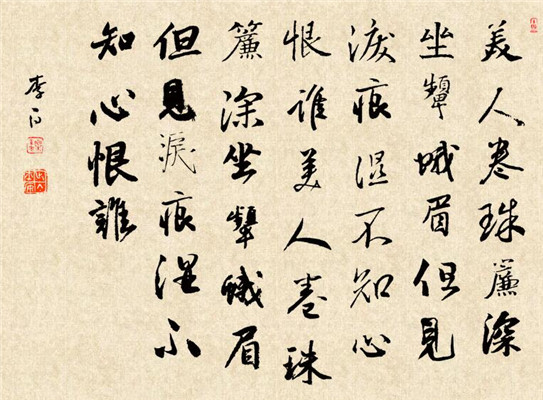 美人卷珠簾深
坐顰蛾眉但見
淚痕湿不知心
恨誰美人卷珠
簾深坐顰蛾眉
但見淚痕湿不
知心恨誰
李白